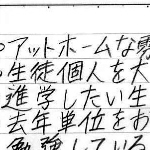 アットホームな雰
生徒個人を大
進学したい生
去年単位をお
勉強している